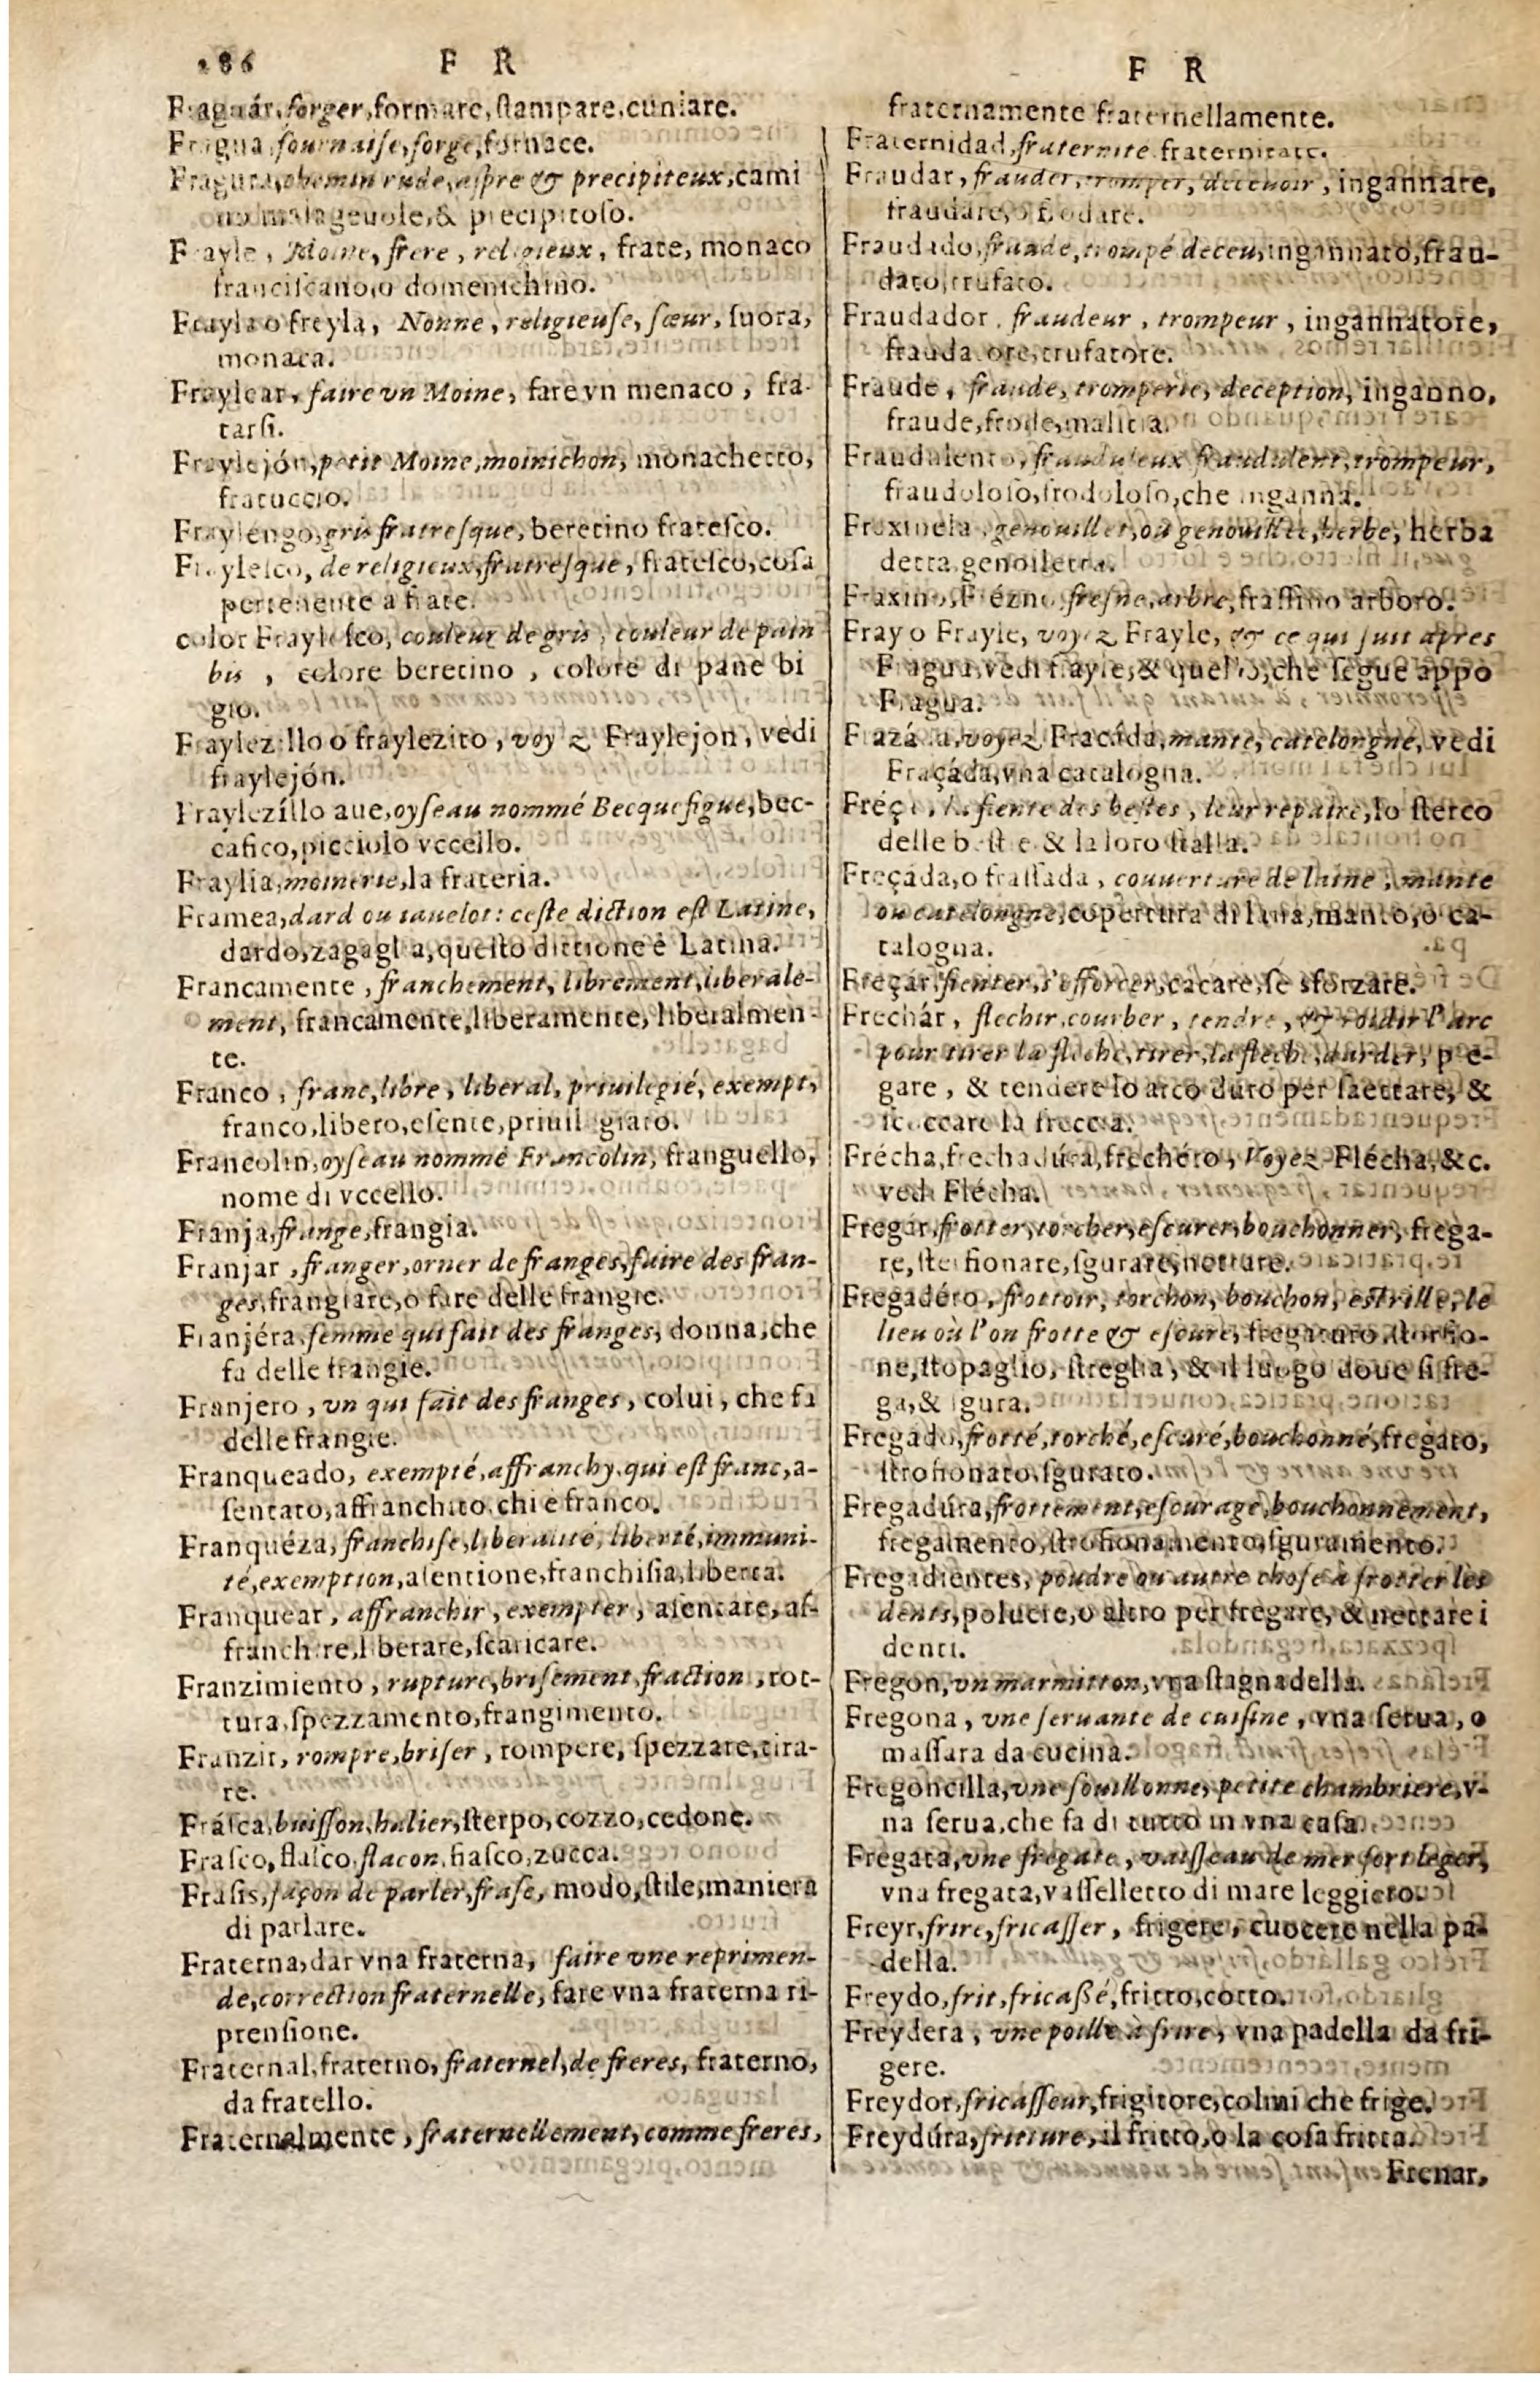 186 F R
Fraguár, forger, formare, ſtampare, cuniare.
Fragua, fournaiſe, forge, fornace.
Fragura, chemin rude, aſpre & precipiteux, cami
no malageuole, & precipitoſo.
Frayle, Moine, frere, religieux, frate, monaco
franciſcano, o domenichino.
Frayla o freyla, Nonne, religieuſe, ſœur, ſuora,
monaca.
Fraylear, faire vn Moine, fare vn menaco, fra-
tarſi.
Fraylejón, petit Moine, moinichon, monachetto,
fratuccio.
Fraylengo, gris fratreſque, beretino frateſco.
Frayleſco, de religieux, fratreſque, frateſco, coſa
pertenente a frate.
color Frayleſco, couleur de gris, couleur de pain
bis, colore beretino, colore di pane bi
gio.
Fraylezillo o fraylezito, voyez Fraylejon, vedi
fraylejón.
Fraylezíllo aue, oyſeau nommé Becquefigue, bec-
cafico, picciolo vccello.
Fraylia, moinerie, la frateria.
Framea, dard ou iauelot: ceſte diction eſt Latine,
dardo, zagaglia, queſto dittione è Latina.
Francamente, franchement, librement, liberale-
ment, francamente, liberamente, liberalmen-
te.
Franco, franc, libre, liberal, priuilegié, exempt,
franco, libero, eſente, priuilegiato.
Francolin, oyſeau nommé Francolin, franguello,
nome di vccello.
Franja, frange, frangia.
Franjar, franger, orner de franges, faire des fran-
ges, frangiare, o fare delle frangie.
Franjéra, femme qui fait des franges, donna, che
fa delle frangie.
Franjero, vn qui fait des franges, colui, che fa
delle frangie.
Franqueado, exempté, affranchy, qui eſt franc, a-
ſentato, affranchito, chi e franco.
Franquéza, franchiſe, liberalité, liberté, immuni-
té, exemption, aſentione, franchiſia, liberta.
Franquear, affranchir, exempter, aſentare, af-
franchire, liberare, ſcaricare.
Franzimiento, rupture, briſement, fraction, rot-
tura, ſpezzamento, frangimento.
Franzir, rompre, briſer, rompere, ſpezzare, tira-
re.
Fráſca, buiſſon, halier, ſterpo, cozzo, cedone.
Fraſco, flaſco, flacon, fiaſco, zucca.
Fraſis, façon de parler, fraſe, modo, ſtile, maniera
di parlare.
Fraterna, dar vna fraterna, faire vne reprimen-
de, correction fraternelle, fare vna fraterna ri-
prenſione.
Fraternal, fraterno, fraternel, de freres, fraterno,
da fratello.
Fraternalmente, fraternellement, comme freres,
F R
fraternamente fraternellamente.
Fraternidad, fraternité fraternitate.
Fraudar, frauder, tromper, deceuoir, ingannare,
fraudare, o frodare.
Fraudado, fraudé, trompé deceu, ingannato, frau-
dato, trufato.
Fraudador, fraudeur, trompeur, ingannatore,
fraudatore, trufatore.
Fraude, fraude, tromperie, deception, inganno,
fraude, frode, malitia.
Fraudulento, frauduleux fraudulent, trompeur,
fraudoloſo, frodoloſo, che inganna.
Fraxinela, genouillet, ou genouillée, herbe, herba
detta genoiletta.
Fraxino, Frézno, freſne, arbre, fraſſino arboro.
Fray o Frayle, voyez Frayle, & ce qui ſuit apres
Fragua, vedi frayle, & quello, che ſegue appo
Fragua.
Frazáda, voyez Fraçáda, mante, catelongne, vedi
Fraçáda, vna catalogna.
Fréça, la fiente des beſtes, leur repaire, lo ſterco
delle beſtie & la loro ſtalla.
Freçáda, o fraſſada, couuerture de laine, mante
ou catelongne, copertura di lana, manto, o ca-
talogna.
Freçár, fienter, s'efforcer, cacare, ſe sforzare.
Frechár, flechir, courber, tendre, & roidir l'arc
pour tirer la fleche, tirer, la fleche, darder, pie-
gare, & tendere lo arco duro per ſaettare, &
ſcoccare la freccia.
Frécha, frechadúra, frechéro, Voyez Flécha, &c.
vedi Flécha.
Fregár, frotter, torcher, eſcurer, bouchonner, frega-
re, ſtrofionare, ſgurare, nettare.
Fregadéro, frottoir, torchon, bouchon, eſtrille, le
lieu où l'on frotte & eſcure, fregaturo, ſtorfio-
ne, ſtopaglio, ſtreglia, & il luogo doue ſi fre-
ga, & ſgura.
Fregado, frotté, torché, eſcuré, bouchonné, fregato,
ſtrofionato, ſgurato.
Fregadúra, frottement, eſcurage, bouchonnement,
fregamento, ſtrofionamento, ſguramento.
Fregadientes, poudre ou autre choſe à frotter les
dents, poluere, o altro per fregare, & nettare i
denti.
Fregon, vn marmitton, vna ſtagnadella.
Fregona, vne ſeruante de cuiſine, vna ſerua, o
maſſara da cucina.
Fregoncilla, vne ſouillonne, petite chambriere, v-
na ſerua, che fa di tutto in vna caſa.
Fregata, vne fregate, vaiſſeau de mer fort leger,
vna fregata, vaſſelletto di mare leggiero.
Freyr, frire, fricaſſer, frigere, cuocere nella pa-
della.
Freydo, frit, fricaßé, fritto, cotto.
Freydera, vne poille à frire, vna padella da fri-
gere.
Freydor, fricaſſeur, frigitore, colui che frige.
Freydúra, friture, il fritto, o la coſa fritta.
Frenar,